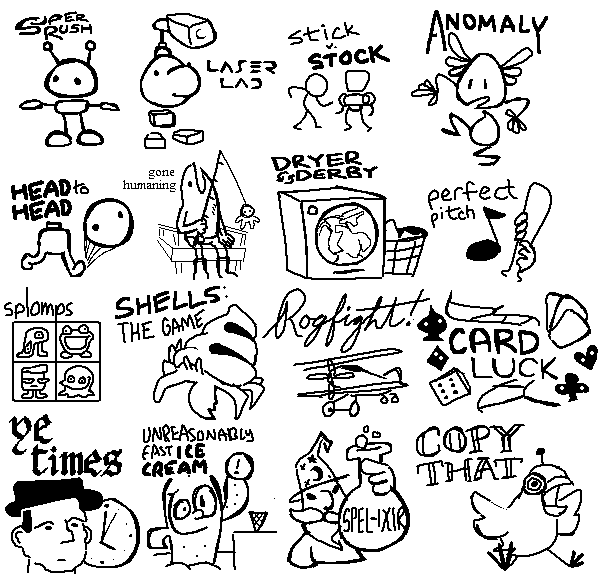 SUPER
RUSH
C
LASER
LAD
stick
v.
STOCK
ANOMALY
HEAD to
HEAD
gone
humaning
DRYER
DERBY
perfect
pitch
splomps
SHELLS:
THE GAME
Rogfight!
CARD
LUCK
ye
times
UNREASONABLY
FAST ICE
CREAM
!
SPEL-IXIR
COPY
THAT